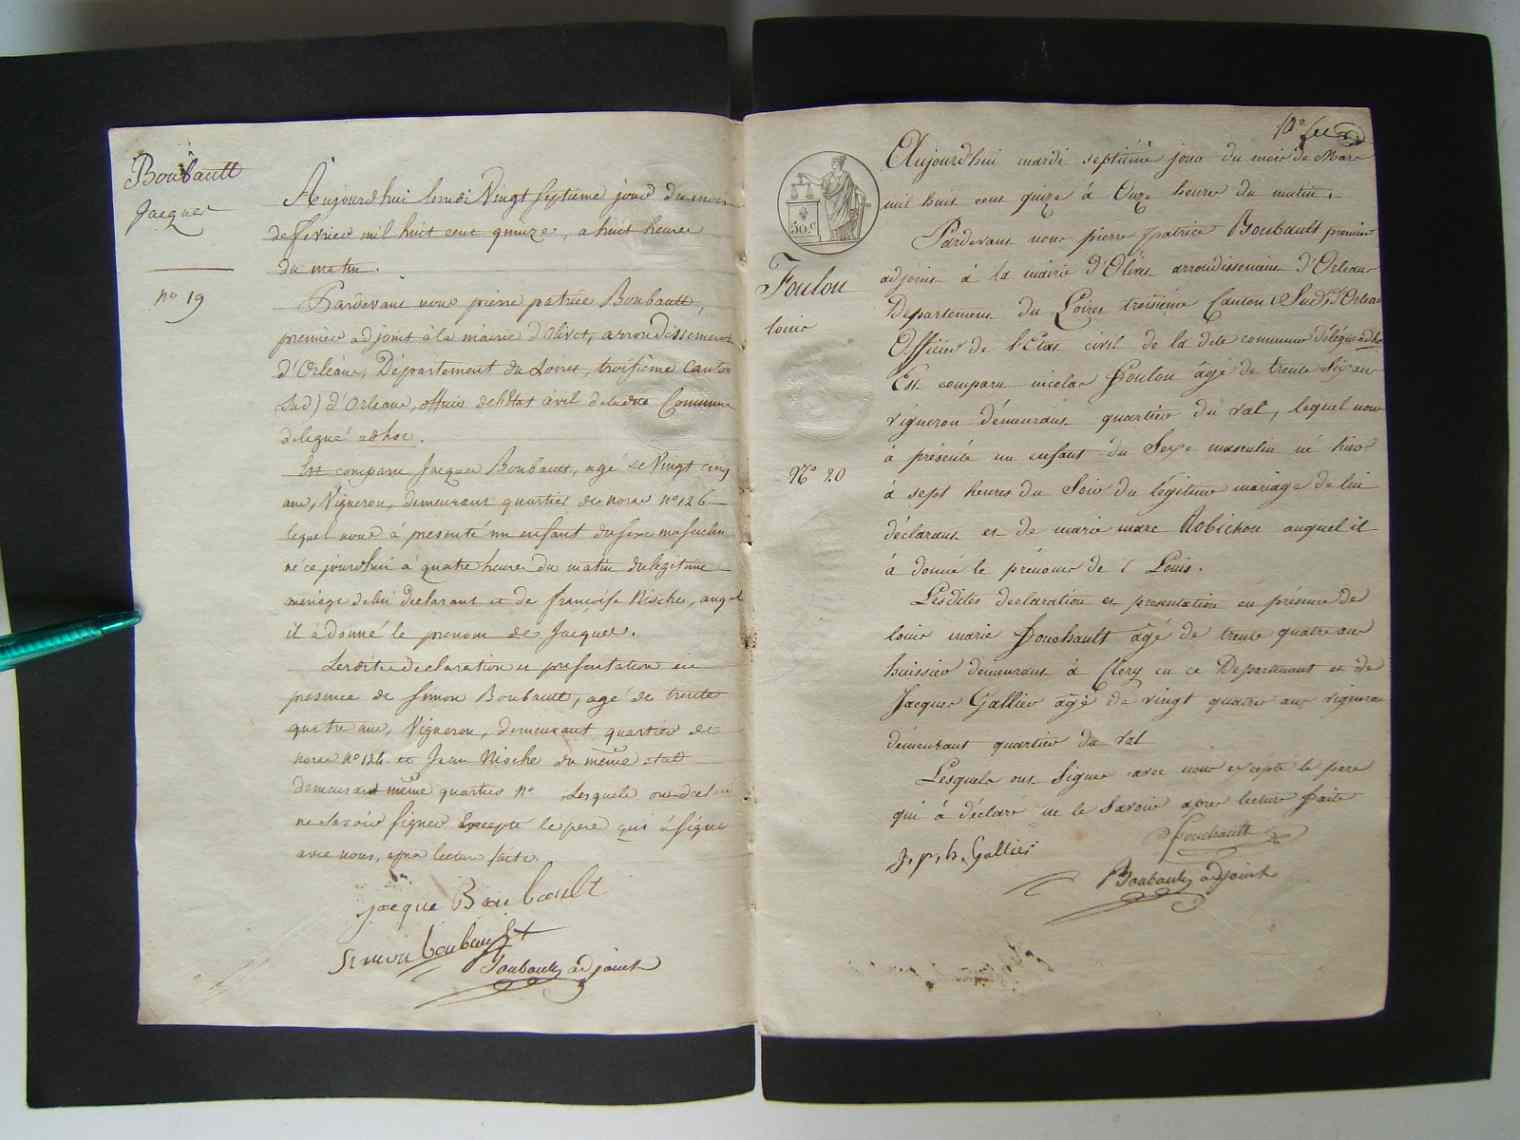 Boubault
Jacques
no 19
Aujourdhui lundi Vingt septieme jour du mois
de fevrier mil huit cent quinze, a huit heures
du matin.
Pardevant nous pierre patrice Boubault,
premier adjoint à la mairie d'Olivet, arrondissement
d'Orléans, Département du Loiret, troisieme Canton
Sud) d'Orleans, officier de l'Etat civil de ladite Commune
delegué adhoc.
Est comparu Jacques Boubault, agé de Vingt cinq
ans, Vigneron, demeurant quartier de norac no 126
lequel nous à presenté un enfant du sexe masculin
né ce jourdhui à quatre heures du matin du legitime
mariage de lui declarant et de françoise Nioche, auquel
il à donné le prenom de Jacques.
Lesdite declaration et presentation en
presence de Simon Boubault, agé de trente
quatre ans, Vigneron, demeurant quartier de
norac no 126 et Jean Nioche du même etat
demeurant même quartier no lesquels ont declaré
ne savoir signer Excepté le pere qui à signé
avec nous, apres lecture faite.
jacque Boubault
Simon boubault
Boubault adjoint
10e
50.c
Foulou
louis
No 20
Aujourdhui mardi septieme jour du mois de Mars
mil huit cent quize à Onze heures du matin.
Pardevant nous pierre patrice Boubault premier
adjoint à la mairie d'Olivet arrondissement d'Orleans
Departement du Loiret troisieme Canton (Sud) d'Orleans
Officier de l'Etat civil de la dite commune délégué adhoc
Est comparu nicolas Foulou âgé de trente six ans
vigneron demeurant quartier du val, lequel nous
à présenté un enfant du Sexe masculin né hier
à sept heures du Soir du légitime mariage de lui
déclarant et de marie marc Robichou auquel il
à donné le prénom de Louis.
Lesdites declaration et presentation en présence de
louis marie Fouchault âgé de trente quatre ans
huissier demeurant à Clery en ce Departement et de
Jacques Gallier âgé de vingt quatre ans vigneron
demeurant quartier du val
Lesquels ont Signé avec nous excepté le pere
qui à déclaré ne le Savoir apres lecture faite
J. p. h. Gallier
Fouchault
Boubault adjoint